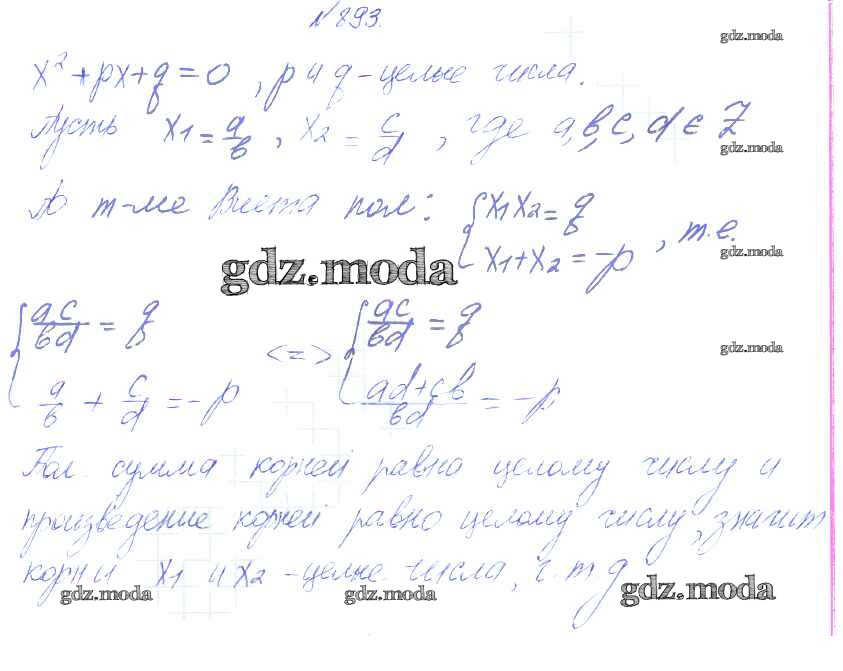 №893.
gdz.moda
x² + px + q = 0, p и q – целые числа.
Пусть x1 = a/в, x2 = c/d, где a, в, c, d ∈ Z
gdz.moda
По т-ме Виета пол: { x1x2 = q
x1 + x2 = -p , т.е.
gdz.moda
gdz.moda
{ ac/вd = q <=> { ac/вd = q
gdz.moda
a/в + c/d = -p ad+cв/вd = -p
Пол. сумма корней равна целому числу и
произведение корней равно целому числу, значит
корни x1 и x2 – целые числа, ч.т.д
gdz.moda gdz.moda gdz.moda